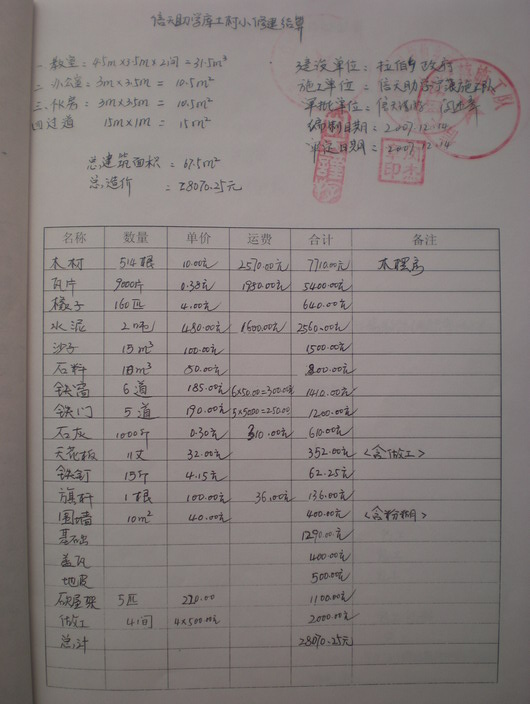 信天助学库土村小修建结算
一 教室: 4.5m×3.5m×2间 = 31.5m²
建设单位: 拉伯乡政府
二 办公室: 3m×3.5m = 10.5m²
施工单位 = 信天助学
三. 伙房: 3m×3.5m = 10.5m²
审批单位 = 信天
四 过道 15m×1m = 15m²
编制日期 = 2007.12.14
审定日期 = 2007.12.14
总建筑面积 = 67.5m²
总造价 = 28070.25元
名称 数量 单价 运费 合计 备注
木材 514根 10.00元 2570.00元 7710.00元
瓦片 9000片 0.38元 1980.00元 5400.00元
椽子 160匹 4.00元 640.00元
水泥 2吨 480.00元 1600.00元 2560.00元
沙子 15m³ 100.00元 1500.00元
石料 m³ 50.00元 800.00元
铁窗 6道 185.00元 6×50.00=300.00元 1410.00元
铁门 5道 190.00元 5×5000=250.00 1200.00元
石灰 1000斤 0.30元 310.00元 610.00元
天花板 11丈 32.00元 352.00元 <含做工>
铁钉 15斤 4.15元 62.25元
旗杆 1根 100.00元 36.00元 136.00元
围墙 10m² 40.00元 400.00元 <含粉糊>
基础 1290.00元
盖瓦 400.00元
地皮 500.00元
屋架 5匹 220.00 1100.00元
做工 4间 4×500.00元 2000.00元
总计 28070.25元